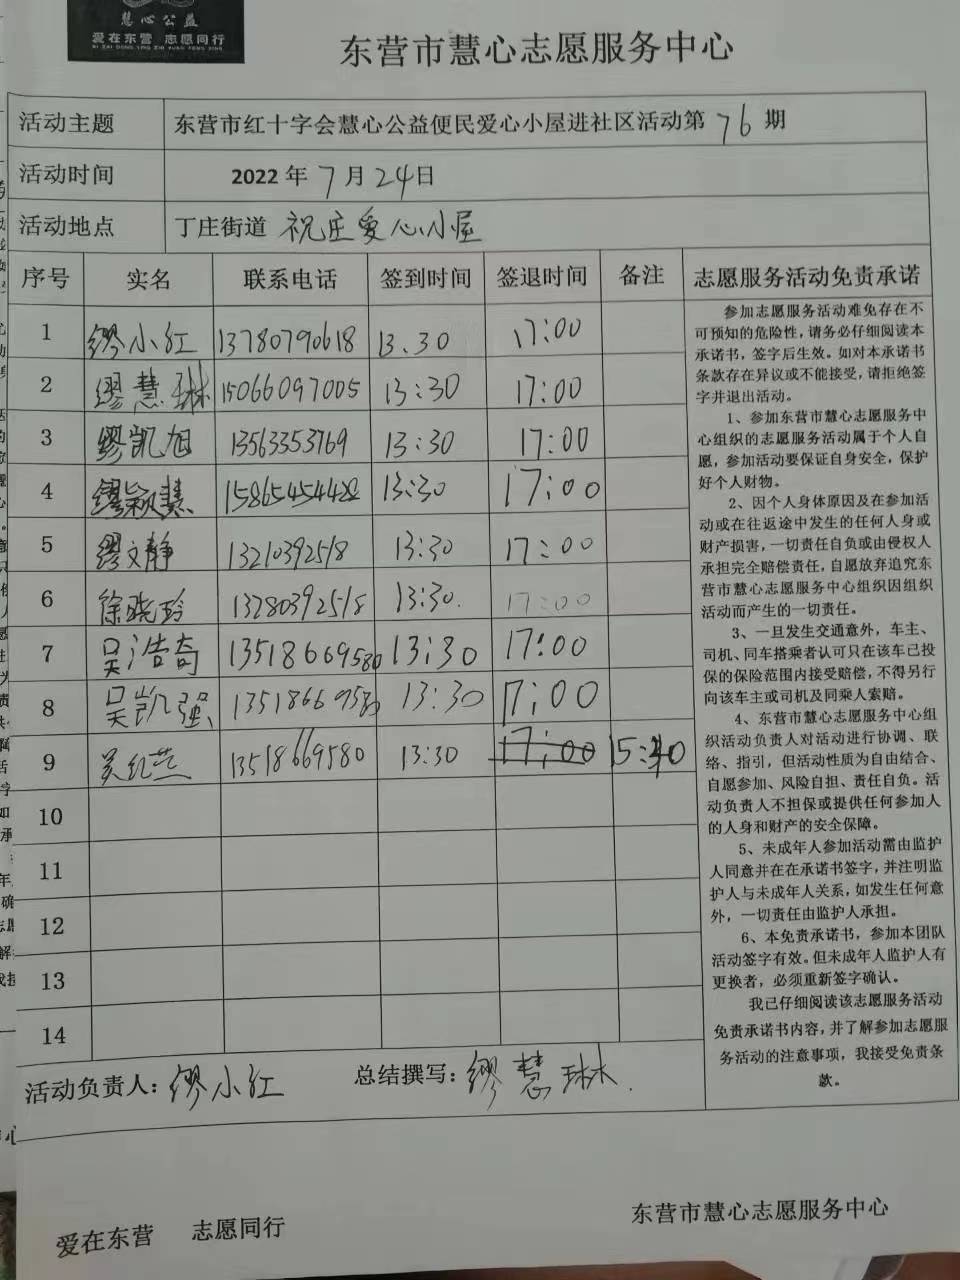 慧心公益
爱在东营 志愿同行
AI ZAI DONG YING ZHI YUAN TONG XING
东营市慧心志愿服务中心
活动主题 东营市红十字会慧心公益便民爱心小屋进社区活动第76期
活动时间 2022年7月24日
活动地点 丁庄街道 祝庄爱心小屋
序号 实名 联系电话 签到时间 签退时间 备注
1 缪小红 13780790618 13.30 17:00
2 缪慧琳 15066097005 13:30 17:00
3 缪凯旭 13563353769 13:30 17:00
4 缪颖慧 15865454422 13:30 17:00
5 缪文静 13210392518 13:30 17:00
6 徐晓玲 13280392518 13:30. 17:00
7 吴浩奇 13518669580 13:30 17:00
8 吴凯强 13518669580 13:30 17:00
9 吴纪燕 13518669580 13:30 17:00 15:40
10
11
12
13
14
志愿服务活动免责承诺
参加志愿服务活动难免存在不
可预知的危险性，请务必仔细阅读本
承诺书，签字后生效。如对本承诺书
条款存在异议或不能接受，请拒绝签
字并退出活动。
1、参加东营市慧心志愿服务中
心组织的志愿服务活动属于个人自
愿，参加活动要保证自身安全，保护
好个人财物。
2、因个人身体原因及在参加活
动或在往返途中发生的任何人身或
财产损害，一切责任自负或由侵权人
承担完全赔偿责任，自愿放弃追究东
营市慧心志愿服务中心组织因组织
活动而产生的一切责任。
3、一旦发生交通意外，车主、
司机、同车搭乘者认可只在该车已投
保的保险范围内接受赔偿，不得另行
向该车主或司机及同乘人索赔。
4、东营市慧心志愿服务中心组
织活动负责人对活动进行协调、联
络、指引，但活动性质为自由结合、
自愿参加、风险自担、责任自负。活
动负责人不担保或提供任何参加人
的人身和财产的安全保障。
5、未成年人参加活动需由监护
人同意并在在承诺书签字，并注明监
护人与未成年人关系，如发生任何意
外，一切责任由监护人承担。
6、本免责承诺书，参加本团队
活动签字有效。但未成年人监护人有
更换者，必须重新签字确认。
我已仔细阅读该志愿服务活动
免责承诺书内容，并了解参加志愿服
务活动的注意事项，我接受免责条
款。
活动负责人：缪小红 总结撰写：缪慧琳.
爱在东营 志愿同行
东营市慧心志愿服务中心